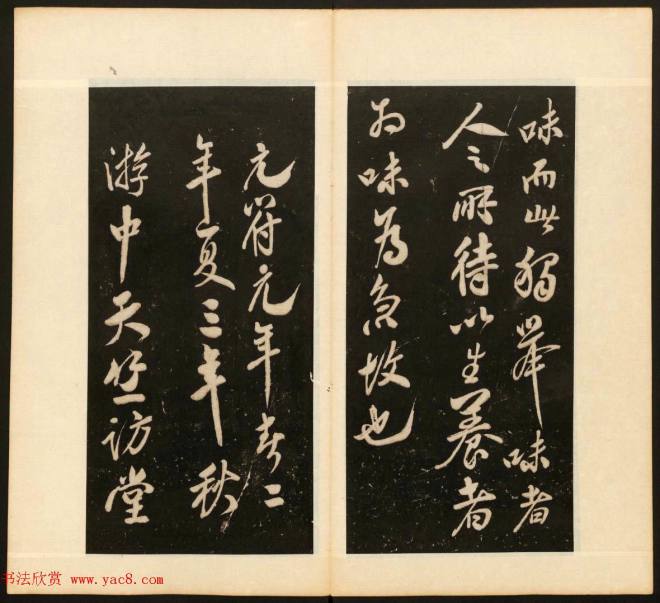 味而此獨舉味者
人之所待以生養者
為味為急故也
元符元年春二
年夏三年秋
游中天竺訪堂
书法欣赏 www.yac8.com